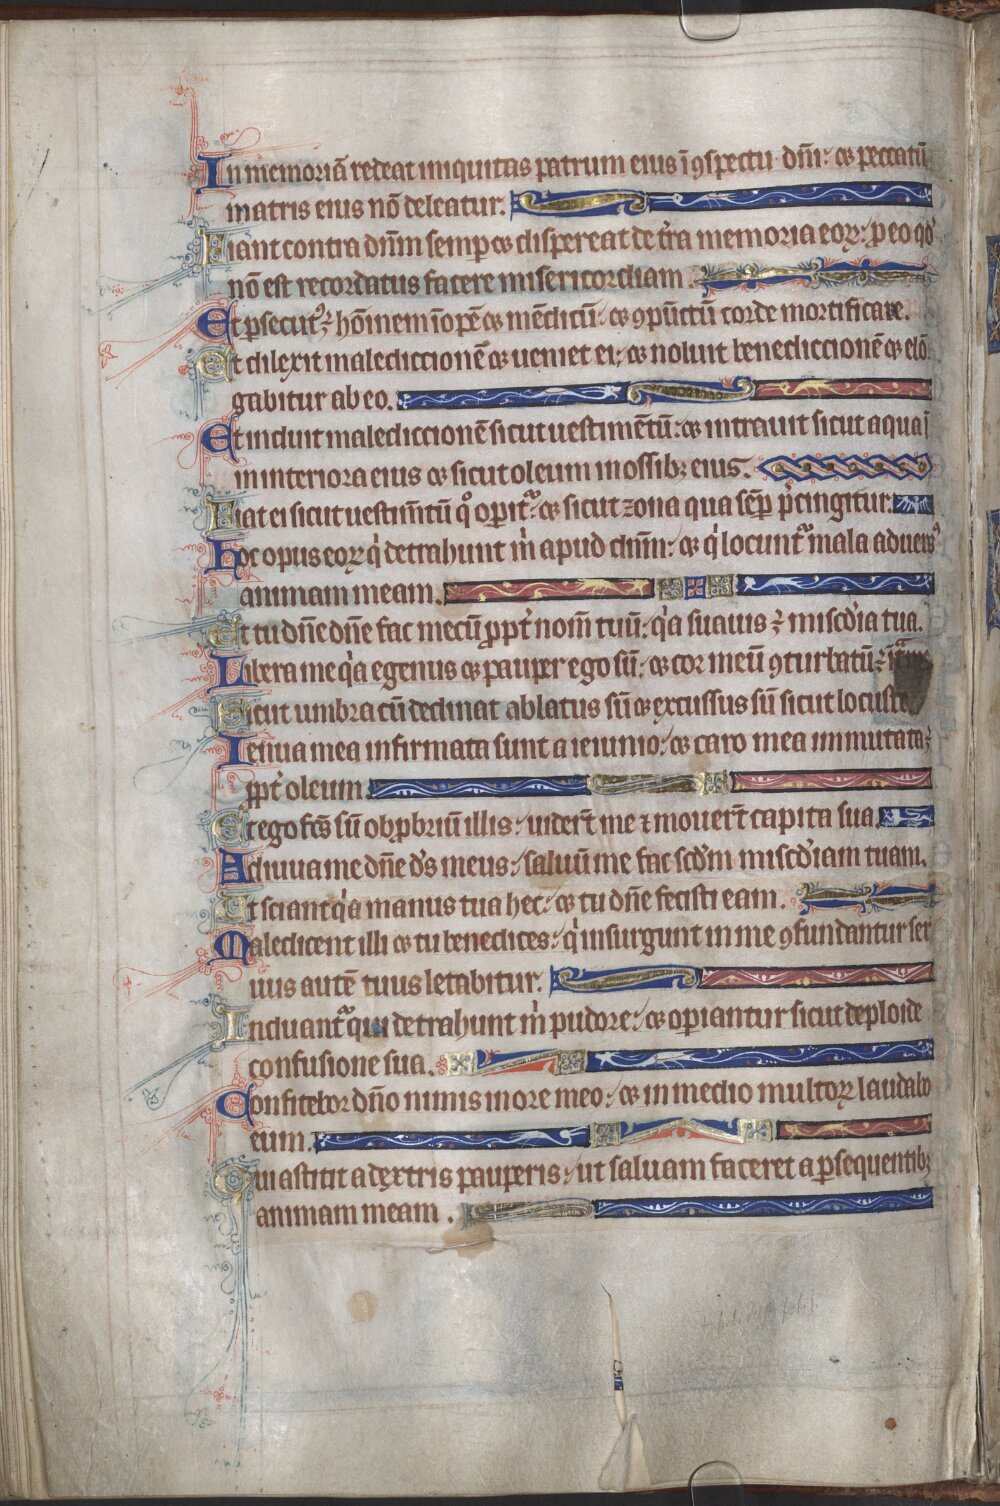 In memoriā redeat iniquitas patrum eius ī ꝯspectu dn̄i: ⁊ peccatū
matris eius nō deleatur.
Fiant contra dn̄m semp ⁊ dispereat de t̄ra memoria eoꝝ: ꝓ eo qd̓
nō est recordatus facere misericordiam.
Et ꝑsecutꝰ ē hōinem īopē ⁊ mēdicū: ⁊ ꝯpūctū corde mortificare.
Et dilexit malediccionē ⁊ ueniet ei: ⁊ noluit benediccionē ⁊ elō
gabitur ab eo.
Et induit malediccionē sicut uestimētū: ⁊ intrauit sicut aqua ī
in interiora eius ⁊ sicut oleum in ossibꝫ eius.
Fiat ei sicut uestim̄tū qͦ opit᷑: ⁊ sicut zona qua sēp p̄cingitur.
Hoc opus eoꝝ qͥ detrahunt m̄ apud dn̄m: ⁊ qͥ locunt᷑ mala aduersꝰ
animam meam.
Et tu dn̄e dn̄e fac mecū ꝓpt̄ nom̄ tuū: qͥa suauis ē misc̄dia tua.
Libera me qͥa egenus ⁊ pauper ego sū: ⁊ cor meū ꝯturbatū ē
Sicut umbra cū declinat ablatus sū ⁊ excussus sū sicut locuste
Ienua mea infirmata sunt a ieiunio: ⁊ caro mea immutata ē
ꝓpt̄ oleum.
Et ego fc̄s sū obꝓbriū illis: uider̄t me ⁊ mouer̄t capita sua.
Adiuua me dn̄e ds̄ meus: saluū me fac scd̄m misc̄diam tuam.
Et sciant qͥa manus tua hec: ⁊ tu dn̄e fecisti eam.
Maledicent illi ⁊ tu benedices: qͥ insurgunt in me ꝯfundantur ser
uus autē tuus letabitur.
Induant᷑ qui detrahunt m̄ pudore: ⁊ operiantur sicut deploide
confusione sua.
Confitebor dn̄o nimis in ore meo: ⁊ in medio multoꝝ laudabo
eum.
Qui astitit a dextris pauperis: ut saluam faceret a ꝑsequentibꝫ
animam meam.